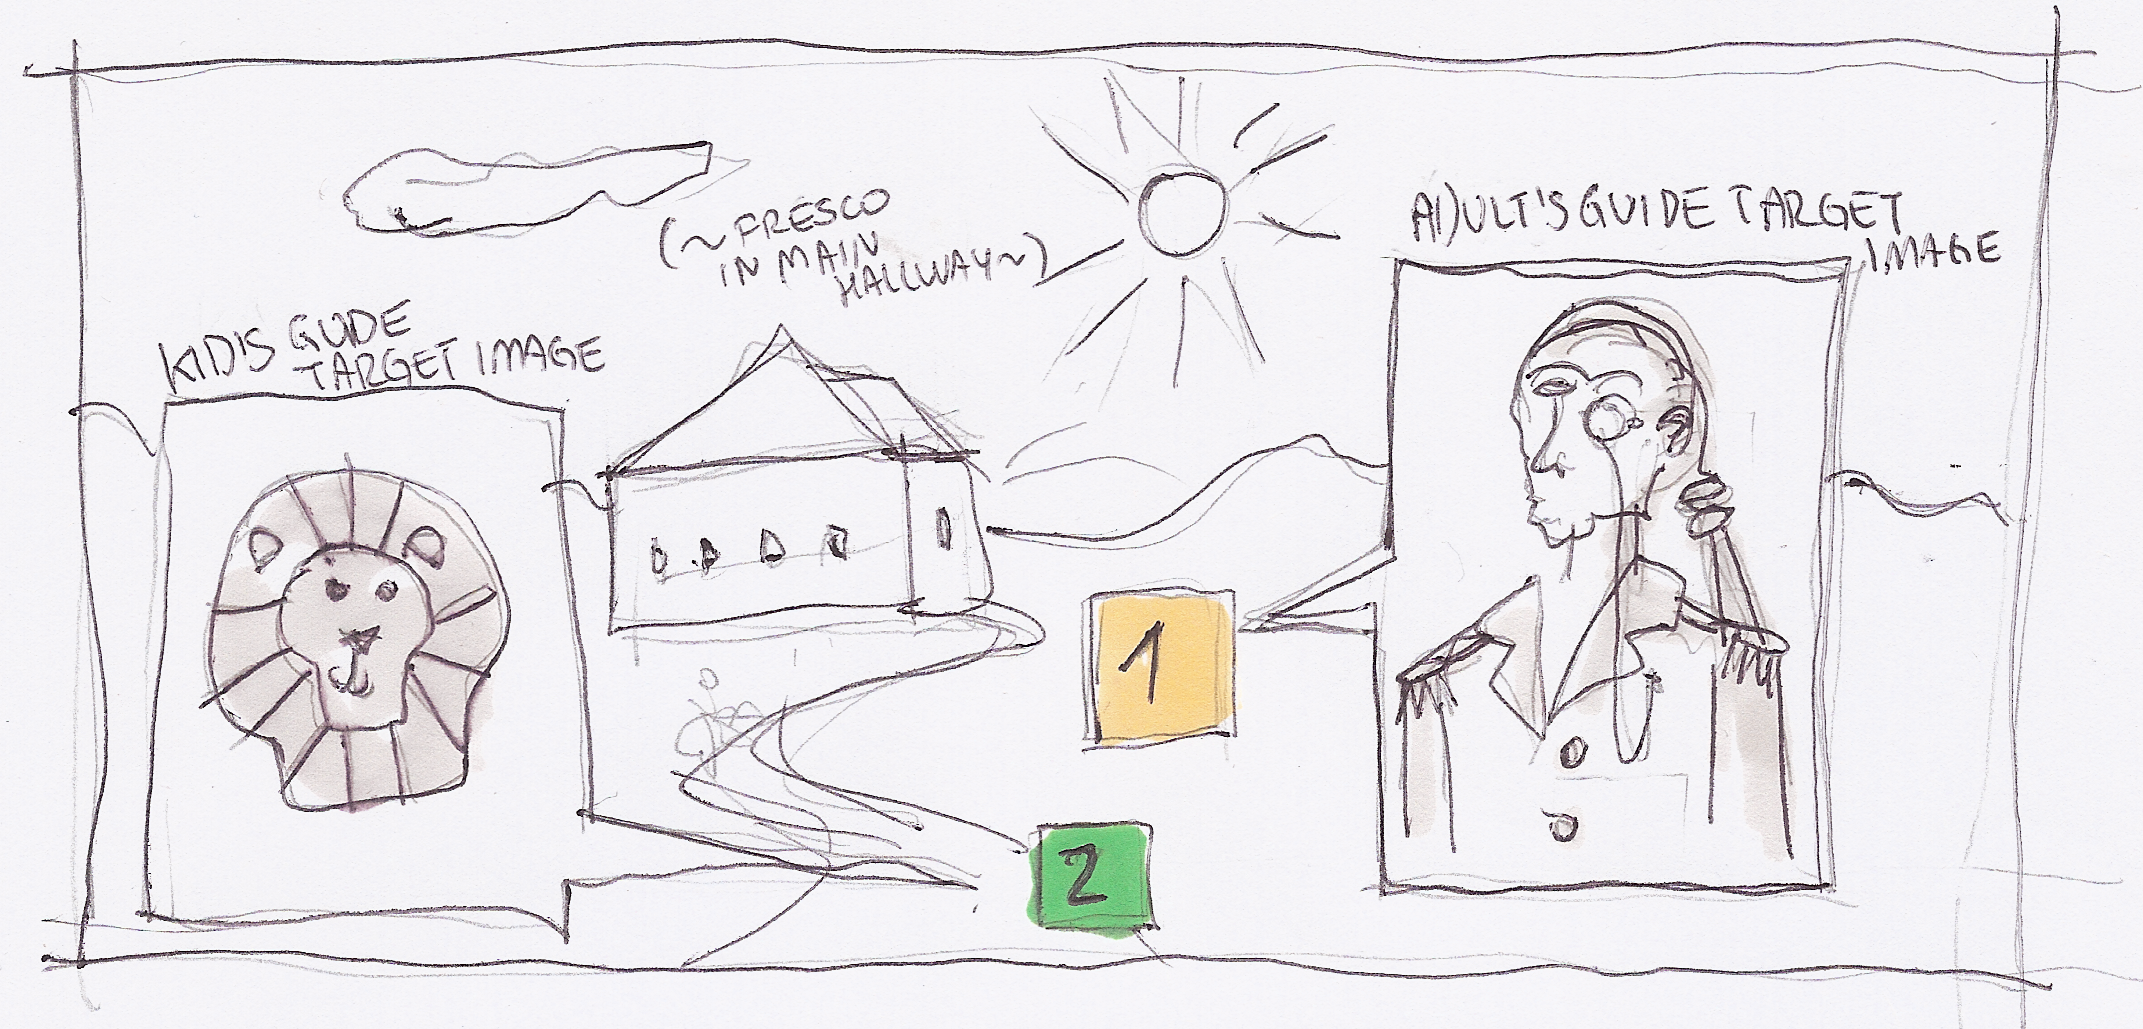 (~FRESCO
IN MAIN
HALLWAY~)
ADULT'S GUIDE TARGET
IMAGE
KID'S GUDE
TARGET IMAGE
1
2